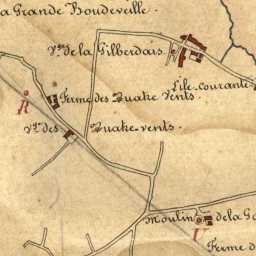 la Grande Houdeville.
Vge. de la Gilberdais.
l'Ile courante
R
Ferme des Quatre Vents.
Vge. des Quatre-vents.
Moulin de la Ga
V
Ferme d